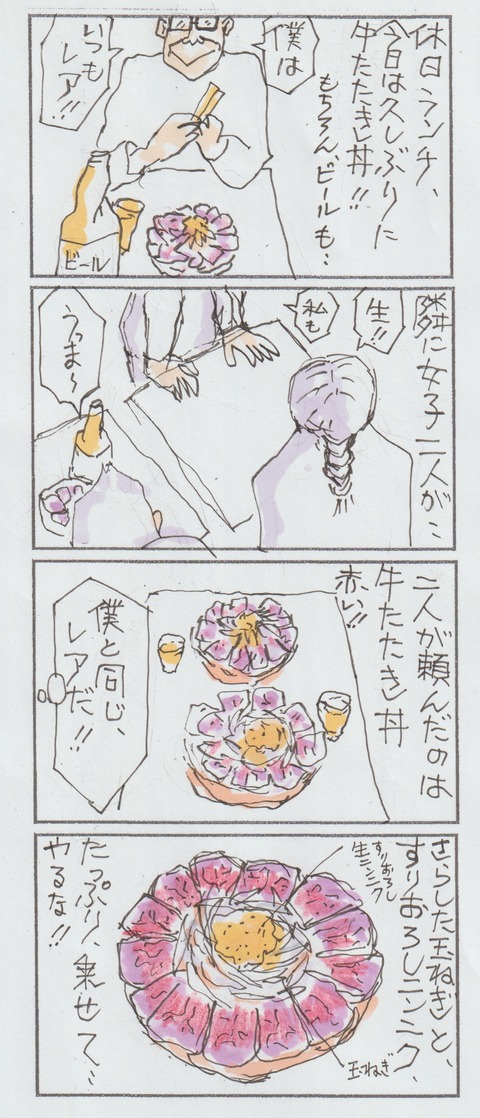 休日ランチ、
今日は久しぶりに
牛たたき丼!!
もちろん、ビールも・・
僕は
いつも
レア!!
ビール
隣に女子二人が・・
生!!
私も
うっま〜
二人が頼んだのは
牛たたき丼
赤い!!
僕と同じ、
レアだ!!
さらした玉ねぎと、
すりおろしニンニク、
すりおろし
生ニンニク
玉ねぎ
たっぷり、乗せて・・
やるな!!